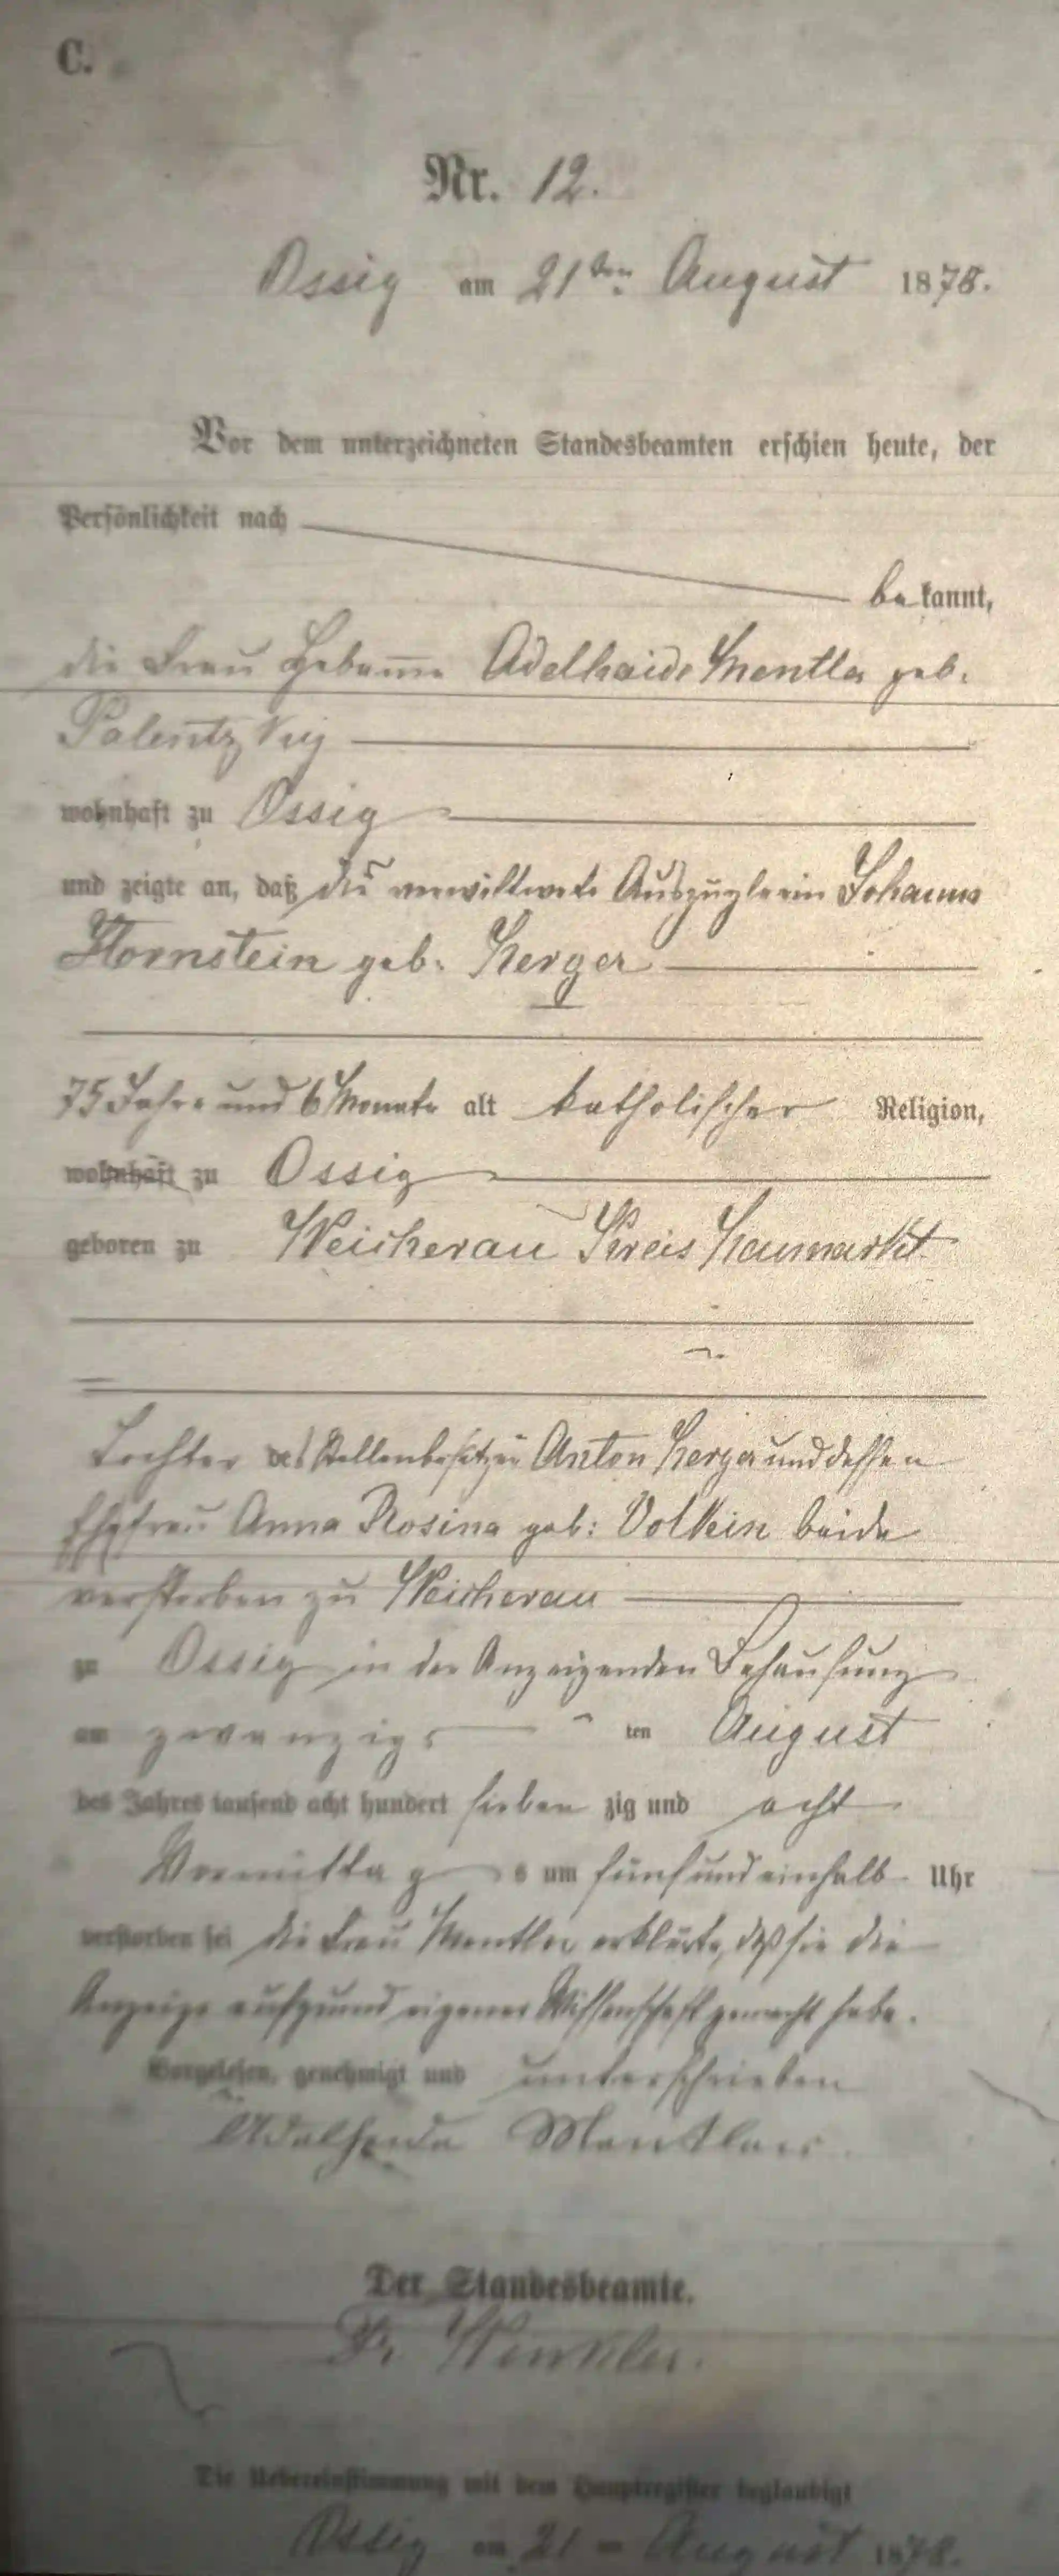 C.
Nr. 12.
Ossig am 21ten August 1878.
Vor dem unterzeichneten Standesbeamten erschien heute, der
Persönlichkeit nach
bekannt,
die Frau Hebamme Adelhaide Mentler geb.
wohnhaft zu Ossig
und zeigte an, daß die verwittwete Auszüglerin Johanna
Hornstein geb. Herger
75 Jahre und 6 Monate alt katholischer Religion,
wohnhaft zu Ossig
geboren zu Weicherau Kreis Neumarkt
Tochter des Stellenbesitzer Anton Herger und dessen
Ehefrau Anna Rosina geb: Volkein beide
verstorben zu Weicherau
zu Ossig in der Anzeigenden Behausung
am zwanzigs ten August
des Jahres tausend acht hundert sieben zig und acht
Vormittag s um fünfundeinhalb Uhr
verstorben sei die Frau Mentler erklärte, daß sie die
Anzeige aufgrund eigener Wissenschaft gemacht habe.
Vorgelesen, genehmigt und unterschrieben
Adelheide Mentler
Der Standesbeamte.
Winkler.
Die Uebereinstimmung mit dem Hauptregister beglaubigt
Ossig am 21 August 1878.